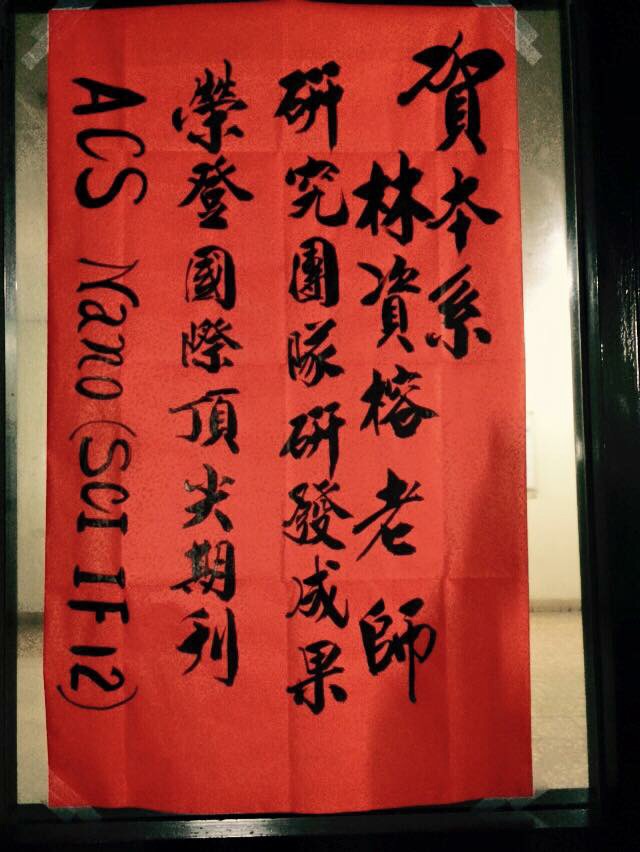 賀本系
林資榕老師
研究團隊研發成果
榮登國際頂尖期刊
ACS Nano (SCI IF 12)